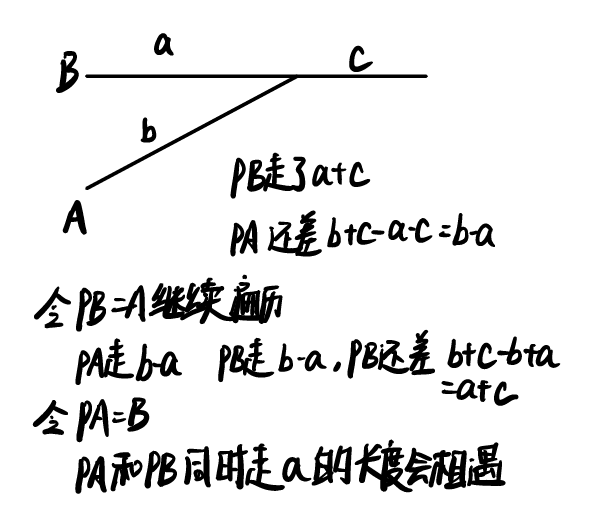 a
B
c
b
A
PB走了a+c
PA还差b+c-a-c=b-a
令PB=A继续遍历
PA走b-a PB走b-a,PB还差b+c-b+a
=a+c
令PA=B
PA和PB同时走a的长度会相遇